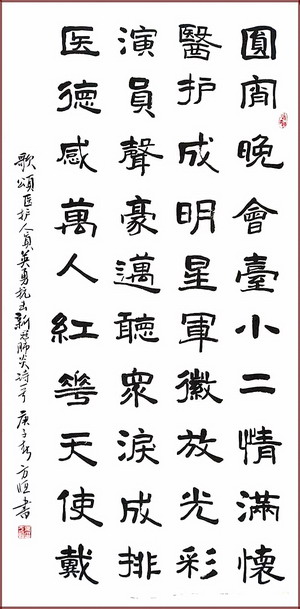 圓宵晚會臺小二情滿懷
醫护成明星軍徽放光彩
演員聲豪邁聽眾淚成排
医德感萬人紅華天使戴
歌頌医护人員英勇抗击新冠肺炎诗一首 庚子春 方恒書